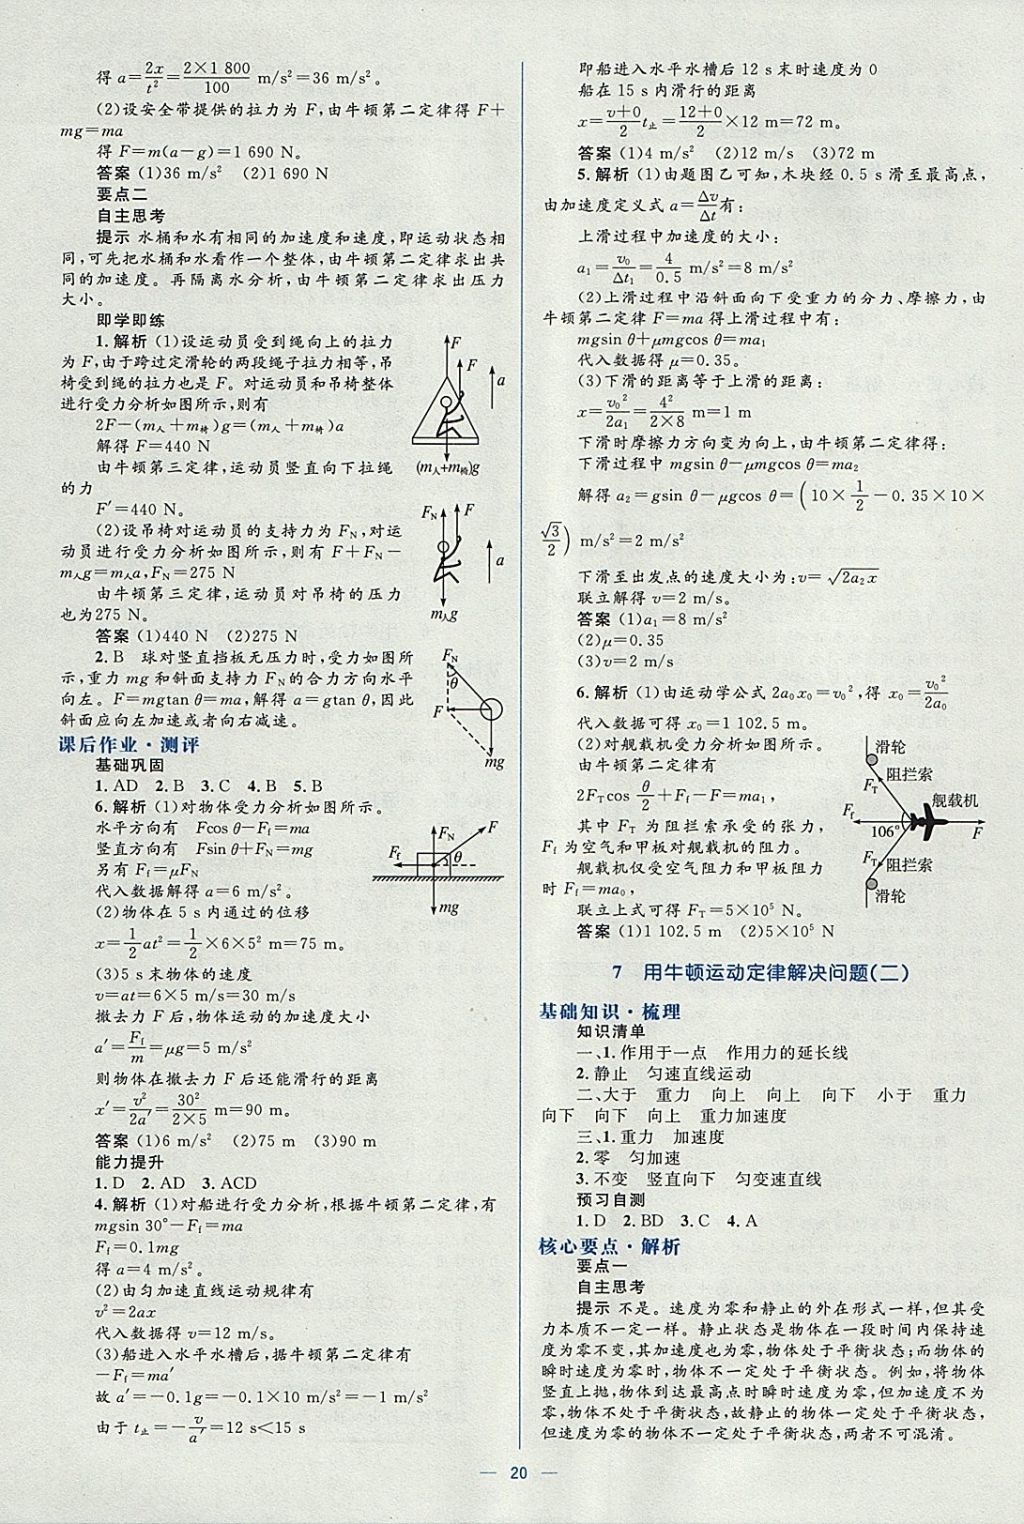 得 a=2x/t²=2×1 800/100 m/s²=36 m/s²。
(2)设安全带提供的拉力为 F,由牛顿第二定律得 F+
mg=ma
得 F=m(a-g)=1 690 N。
答案 (1)36 m/s² (2)1 690 N
要点二
自主思考
提示 水桶和水有相同的加速度和速度,即运动状态相
同,可先把水桶和水看作一个整体,由牛顿第二定律求出共
同的加速度。再隔离水分析,由牛顿第二定律求出压力
大小。
即学即练
1.解析 (1)设运动员受到绳向上的拉力
为 F,由于跨过定滑轮的两段绳子拉力相等,吊
椅受到绳的拉力也是 F。对运动员和吊椅整体
进行受力分析如图所示,则有
2F-(m人+m椅)g=(m人+m椅)a
解得 F=440 N
由牛顿第三定律,运动员竖直向下拉绳
的力
F′=440 N。
F
F
a
(m人+m椅)g
(2)设吊椅对运动员的支持力为 FN,对运
动员进行受力分析如图所示,则有 F+FN-
m人g=m人a,FN=275 N
由牛顿第三定律,运动员对吊椅的压力
也为275 N。
FN
F
a
m人g
答案 (1)440 N (2)275 N
2. B 球对竖直挡板无压力时,受力如图所
示,重力 mg 和斜面支持力 FN的合力方向水平
向左。F=mgtan θ=ma,解得 a=gtan θ,因此
斜面应向左加速或者向右减速。
FN
θ
F
mg
课后作业·测评
基础巩固
1. AD 2. B 3. C 4. B 5. B
6.解析 (1)对物体受力分析如图所示。
水平方向有 Fcos θ-Ff=ma
竖直方向有 Fsin θ+FN=mg
另有 Ff=μFN
代入数据解得 a=6 m/s²。
FN
F
Ff
θ
mg
(2)物体在 5 s内通过的位移
x=1/2at²=1/2×6×5² m=75 m。
(3)5 s末物体的速度
v=at=6×5 m/s=30 m/s
撤去力 F 后,物体运动的加速度大小
a′=Ff/m=μg=5 m/s²
则物体在撤去力 F 后还能滑行的距离
x′=v²/2a′=30²/2×5 m=90 m。
答案 (1)6 m/s² (2)75 m (3)90 m
能力提升
1. D 2. AD 3. ACD
4.解析 (1)对船进行受力分析,根据牛顿第二定律,有
mgsin 30°-Ff=ma
Ff=0.1mg
得 a=4 m/s²。
(2)由匀加速直线运动规律有
v²=2ax
代入数据得 v=12 m/s。
(3)船进入水平水槽后,据牛顿第二定律有
-Ff=ma′
故 a′=-0.1g=-0.1×10 m/s²=-1 m/s²
由于 t止=-v/a′=12 s<15 s
即船进入水平水槽后12 s末时速度为 0
船在15 s内滑行的距离
x=v+0/2 t止=12+0/2×12 m=72 m。
答案 (1)4 m/s² (2)12 m/s (3)72 m
5.解析 (1)由题图乙可知,木块经 0.5 s滑至最高点,
由加速度定义式 a=Δv/Δt有:
上滑过程中加速度的大小:
a₁=v₀/Δt₁=4/0.5 m/s²=8 m/s²
(2)上滑过程中沿斜面向下受重力的分力、摩擦力,由
牛顿第二定律 F=ma得上滑过程中有:
mgsin θ+μmgcos θ=ma₁
代入数据得 μ=0.35。
(3)下滑的距离等于上滑的距离:
x=v₀²/2a₁=4²/2×8 m=1 m
下滑时摩擦力方向变为向上,由牛顿第二定律得:
下滑过程中 mgsin θ-μmgcos θ=ma₂
解得 a₂=gsin θ-μgcos θ=(10×1/2-0.35×10×
√3/2) m/s²=2 m/s²
下滑至出发点的速度大小为:v=√2a₂x
联立解得 v=2 m/s。
答案 (1)a₁=8 m/s²
(2)μ=0.35
(3)v=2 m/s
6.解析 (1)由运动学公式 2a₀x₀=v₀²,得 x₀=v₀²/2a₀
代入数据可得 x₀=1 102.5 m。
(2)对舰载机受力分析如图所示。
由牛顿第二定律有
2FTcos θ/2+Ff-F=ma₁,
其中 FT 为阻拦索承受的张力,
Ff 为空气和甲板对舰载机的阻力。
舰载机仅受空气阻力和甲板阻力
时 Ff=ma₀,
联立上式可得 FT=5×10⁵ N。
滑轮
阻拦索
FT
舰载机
Ff
106°
F
FT
阻拦索
滑轮
答案 (1)1 102.5 m (2)5×10⁵ N
7 用牛顿运动定律解决问题(二)
基础知识·梳理
知识清单
一、1.作用于一点 作用力的延长线
2.静止 匀速直线运动
二、大于 重力 向上 向上 向下 小于 重力
向下 向下 向上 重力加速度
三、1.重力 加速度
2.零 匀加速
3.不变 竖直向下 匀变速直线
预习自测
1. D 2. BD 3. C 4. A
核心要点·解析
要点一
自主思考
提示 不是。速度为零和静止的外在形式一样,但其受
力本质不一定一样。静止状态是物体在一段时间内保持速
度为零不变,其加速度也为零,物体处于平衡状态;而物体的
瞬时速度为零时,物体不一定处于平衡状态。例如,将物体
竖直上抛,物体到达最高点时瞬时速度为零,但加速度不为
零,物体不处于平衡状态,故静止的物体一定处于平衡状态,
但速度为零的物体不一定处于平衡状态,两者不可混淆。
— 20 —